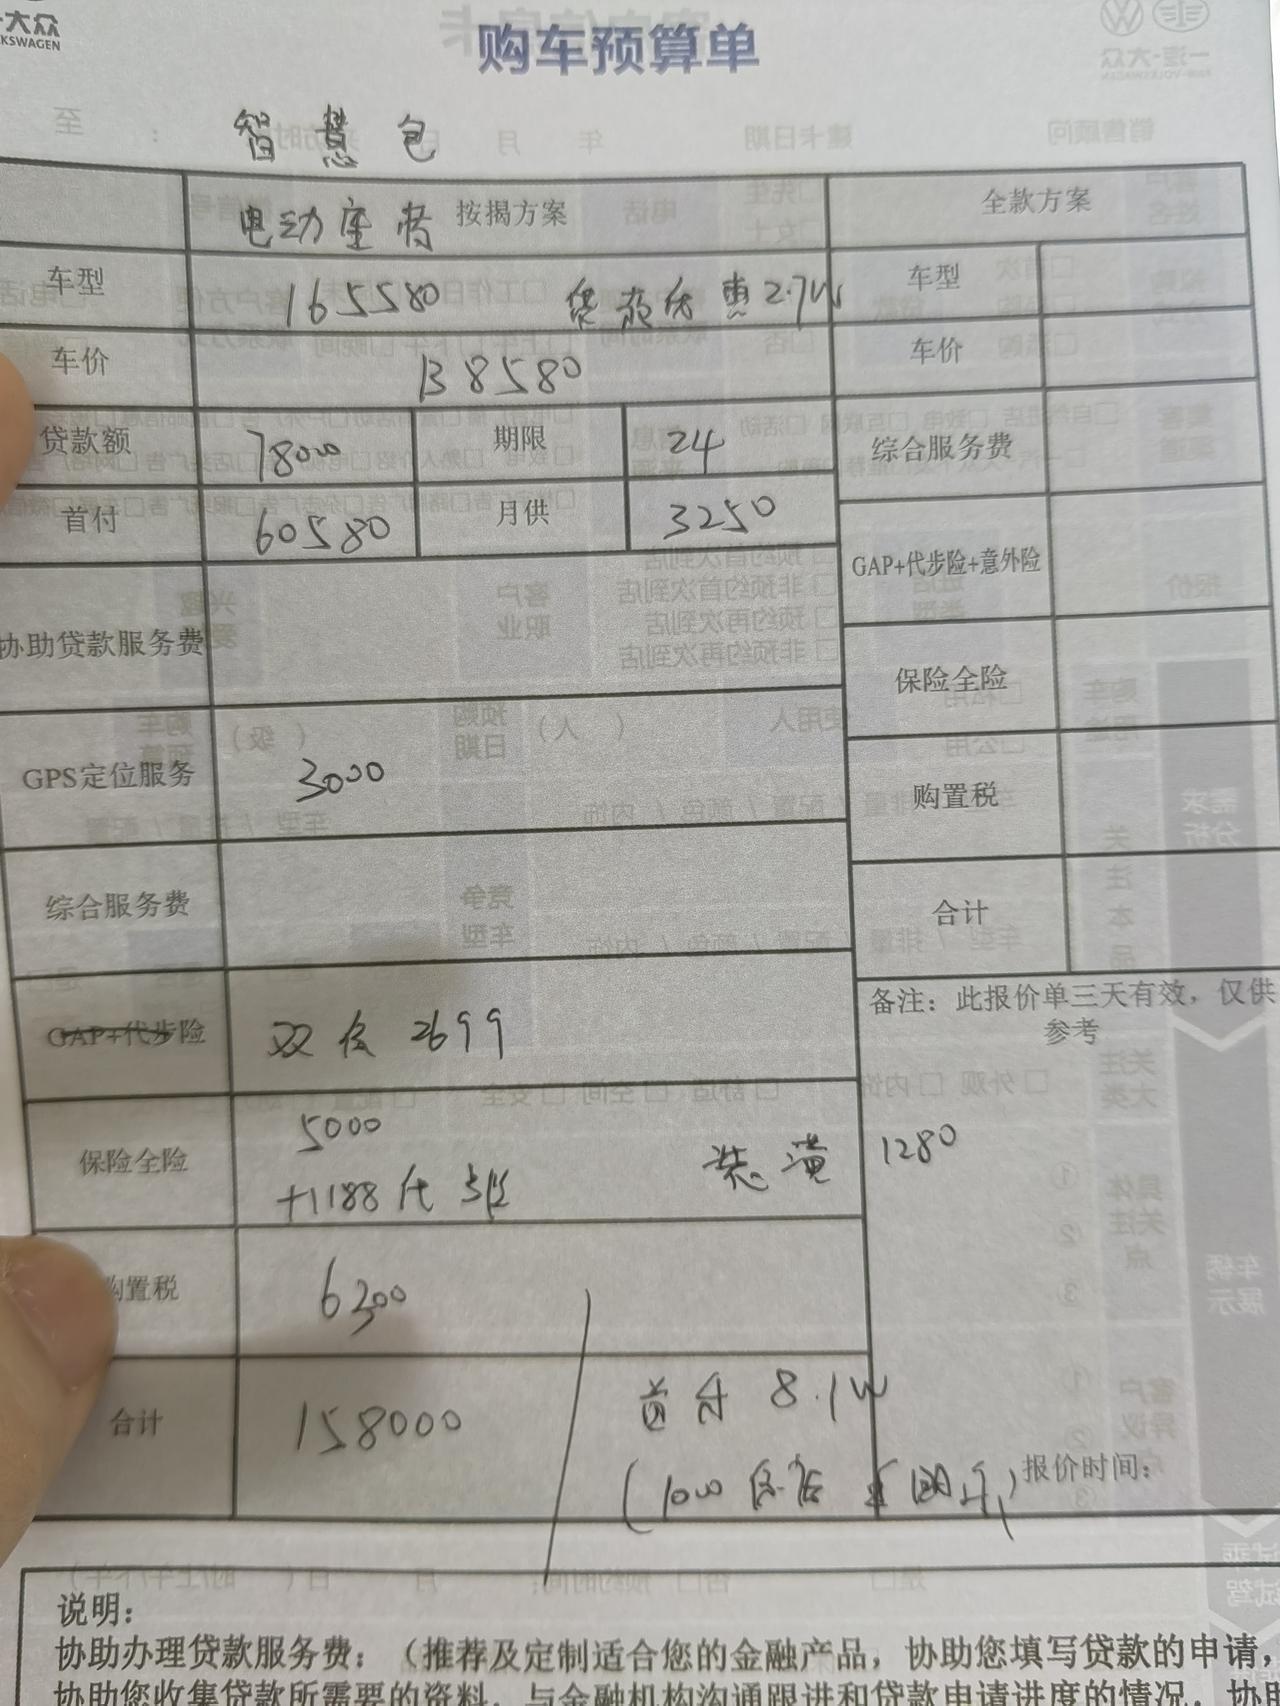 一大众
KSWAGEN
购车预算单
智慧包
电动座椅 按揭方案 全款方案
车型 165580 贷款优惠2.7W 车型
车价 138580 车价
贷款额 78000 期限 24 综合服务费
首付 60580 月供 3250
GAP+代步险+意外险
协助贷款服务费
保险全险
GPS定位服务 3000
购置税
综合服务费
合计
GAP+代步险 双保 2699
备注：此报价单三天有效，仅供
参考
保险全险 5000
+1188 代步险 装潢 1280
购置税 6300
合计 158000 首付 8.1W
(1000 报价时间：
说明：
协助办理贷款服务费：（推荐及定制适合您的金融产品，协助您填写贷款的申请，
协助您收集贷款所需要的资料，与金融机构沟通跟进和贷款申请进度的情况，协助